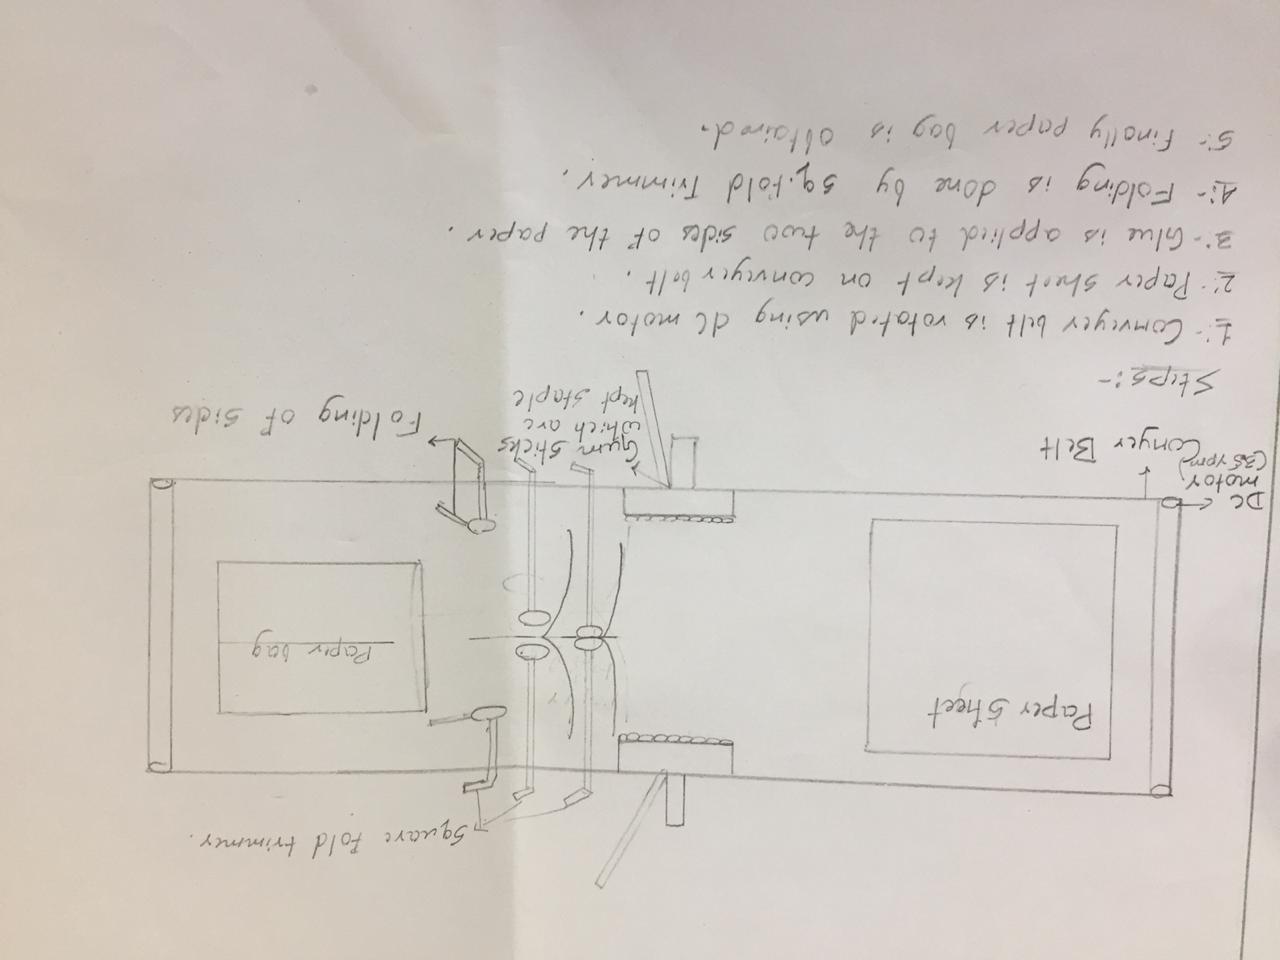 Square Fold trimmer.
Paper Sheet
Paper bag
DC
motor
(35 rpm)
Conyer Belt
Gum Sticks
which are
kept staple
Folding of sides
Steps:-
1:- Conveyer belt is rotated using dC motor.
2:- Paper sheet is kept on conveyer belt.
3:- Glue is applied to the two sides of the paper.
4:- Folding is done by sq.fold Trimmer.
5:- Finally paper bag is obtained.